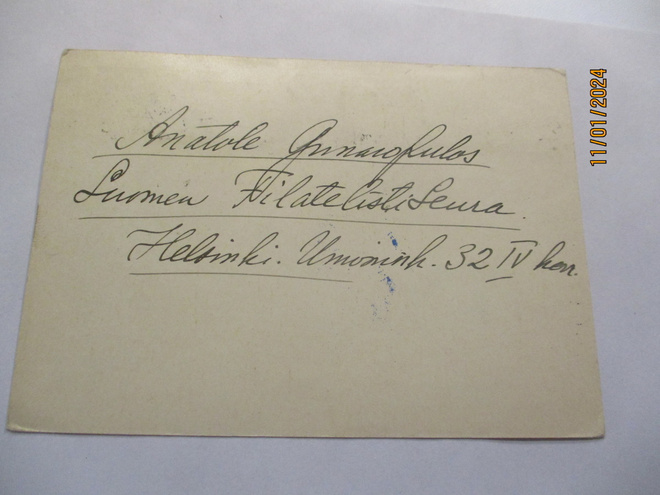 Anatole
Suomen FilatelistiSeura.
Helsinki. Unionink. 32 IV kerr.
11/01/2024